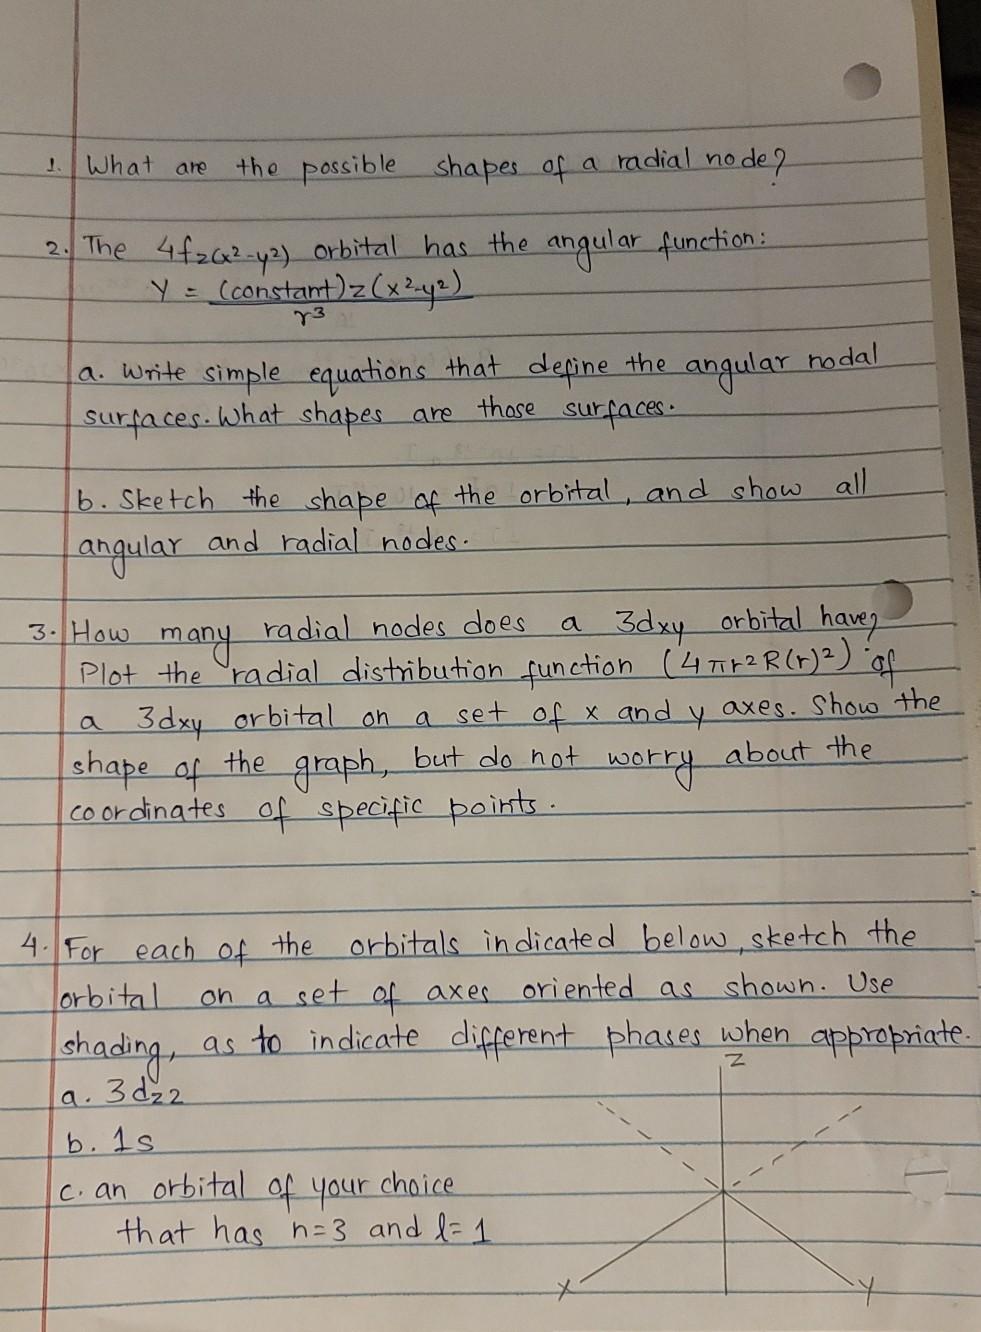 1. What are the possible shapes of a radial node?
2. The 4fz(x²-y²) orbital has the angular function:
Y = (constant)z(x²-y²)
r³
a. Write simple equations that define the angular nodal
surfaces. What shapes are those surfaces.
b. Sketch the shape of the orbital, and show all
angular and radial nodes.
3. How many radial nodes does a 3dxy orbital have?
Plot the radial distribution function (4πr²R(r)²) of
a 3dxy orbital on a set of x and y axes. Show the
shape of the graph, but do not worry about the
coordinates of specific points.
4. For each of the orbitals indicated below, sketch the
orbital on a set of axes oriented as shown. Use
shading, as to indicate different phases when appropriate.
Z
a. 3dz2
b. 1s
c. an orbital of your choice
that has n=3 and l=1
X Y